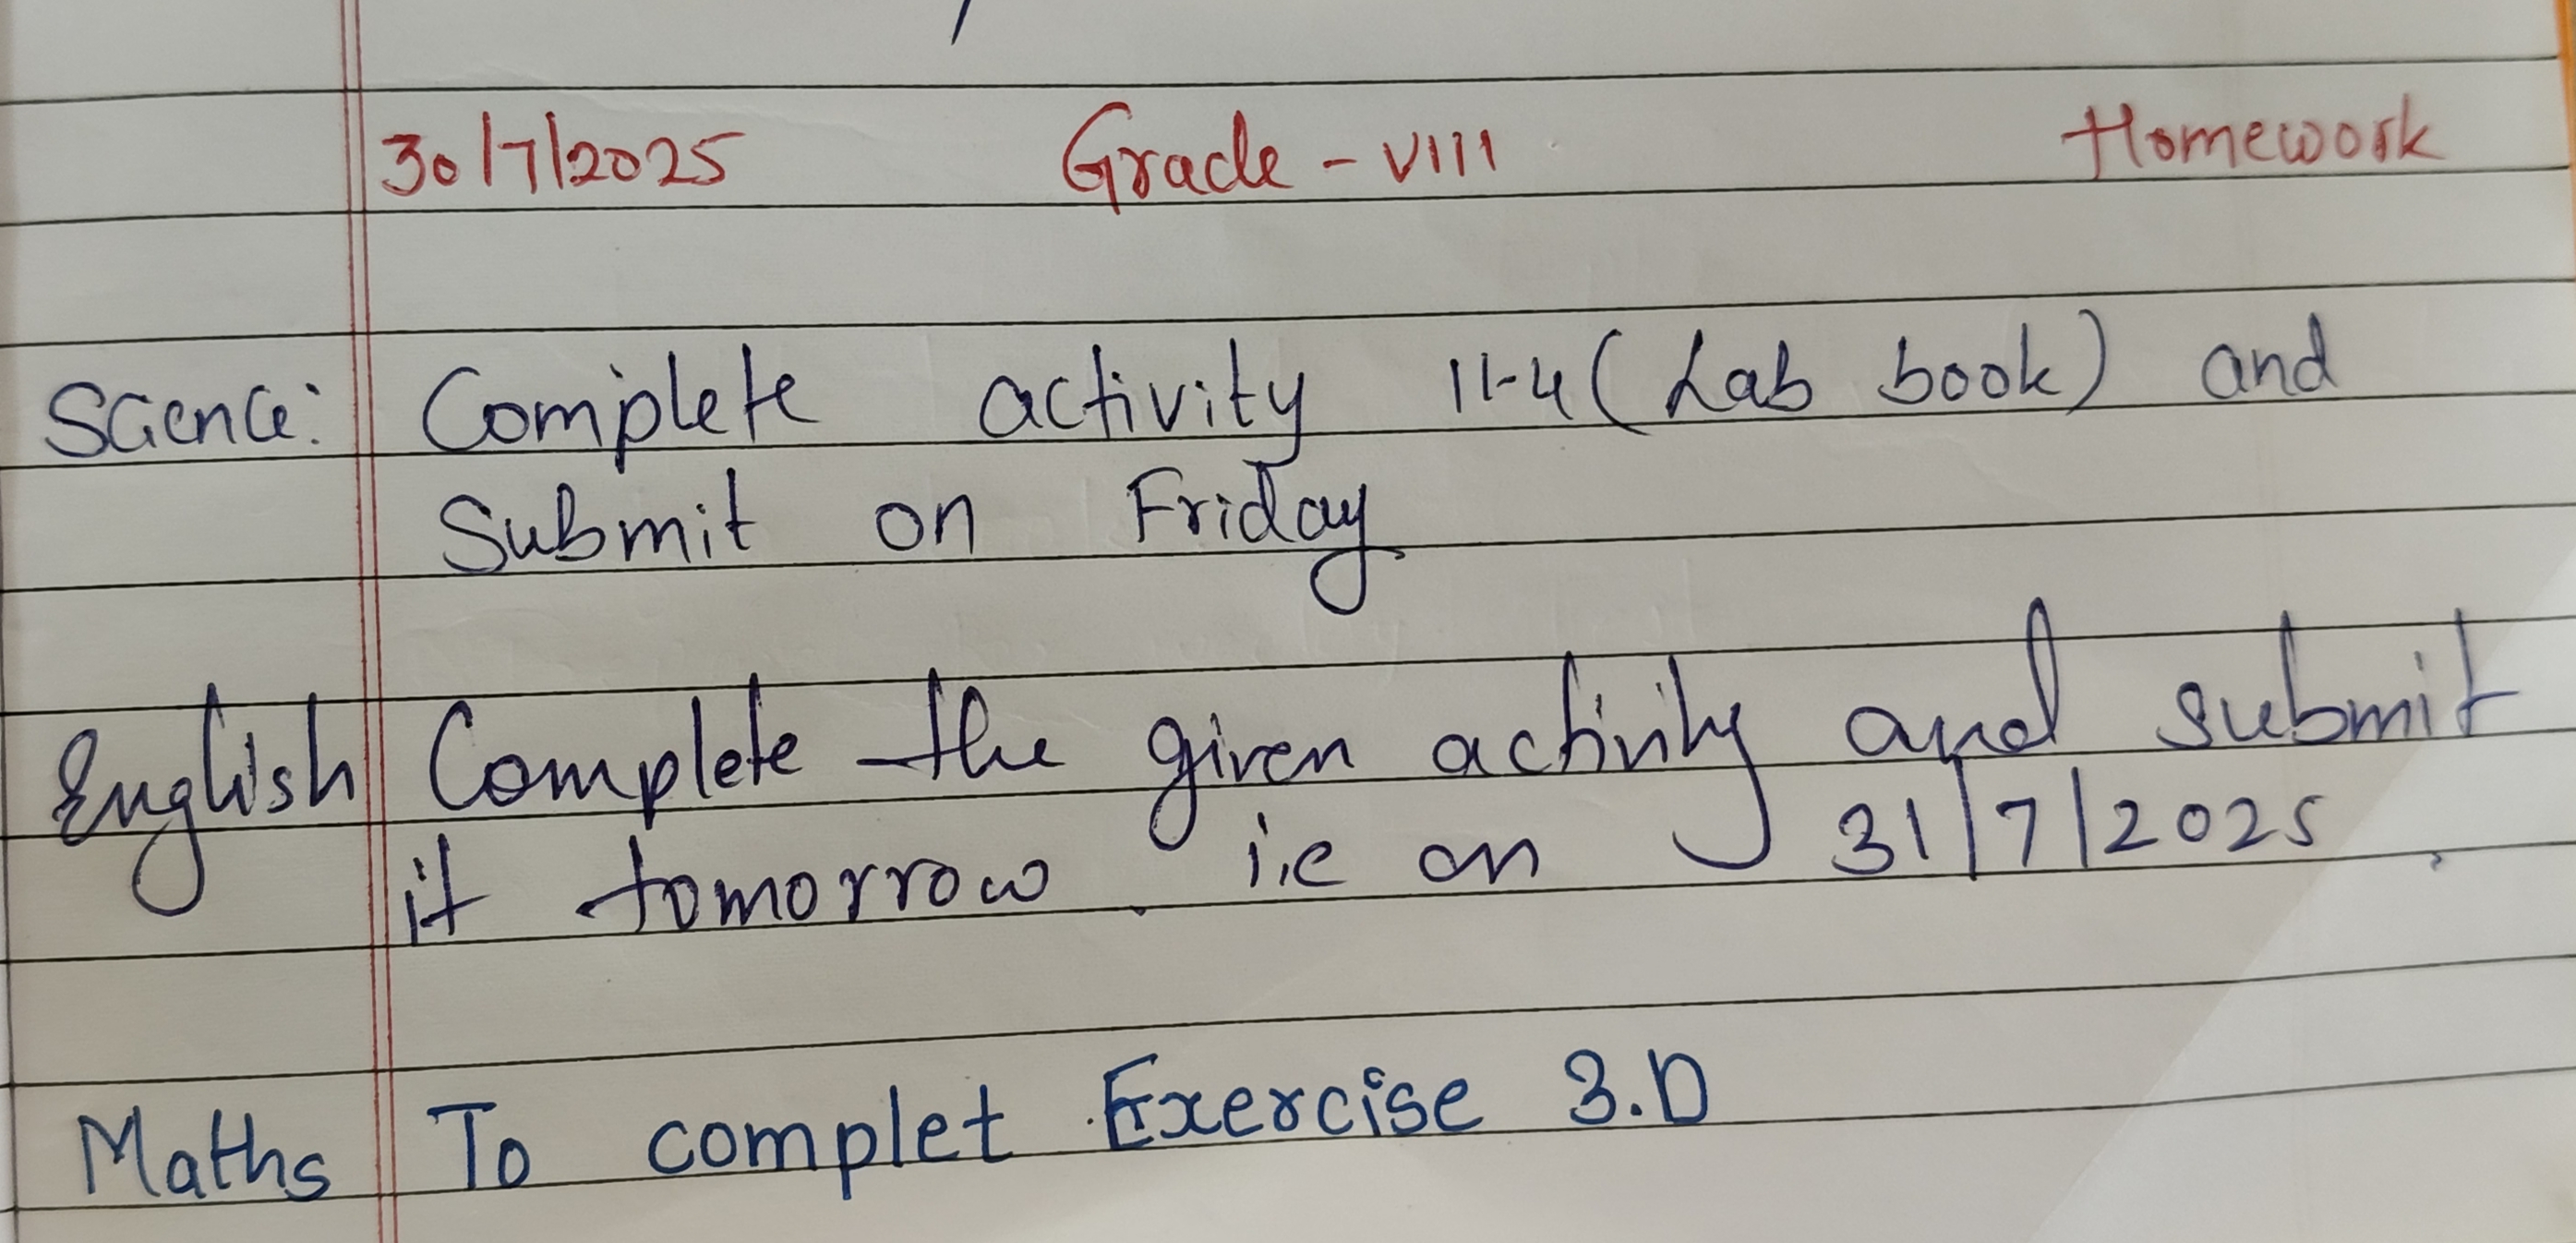 30/7/2025 Grade - VIII Homework
Science: Complete activity 11.4 (Lab book) and
Submit on Friday
English Complete the given activity and submit
it tomorrow. i.e on 31/7/2025.
Maths To complet Exercise 3.D